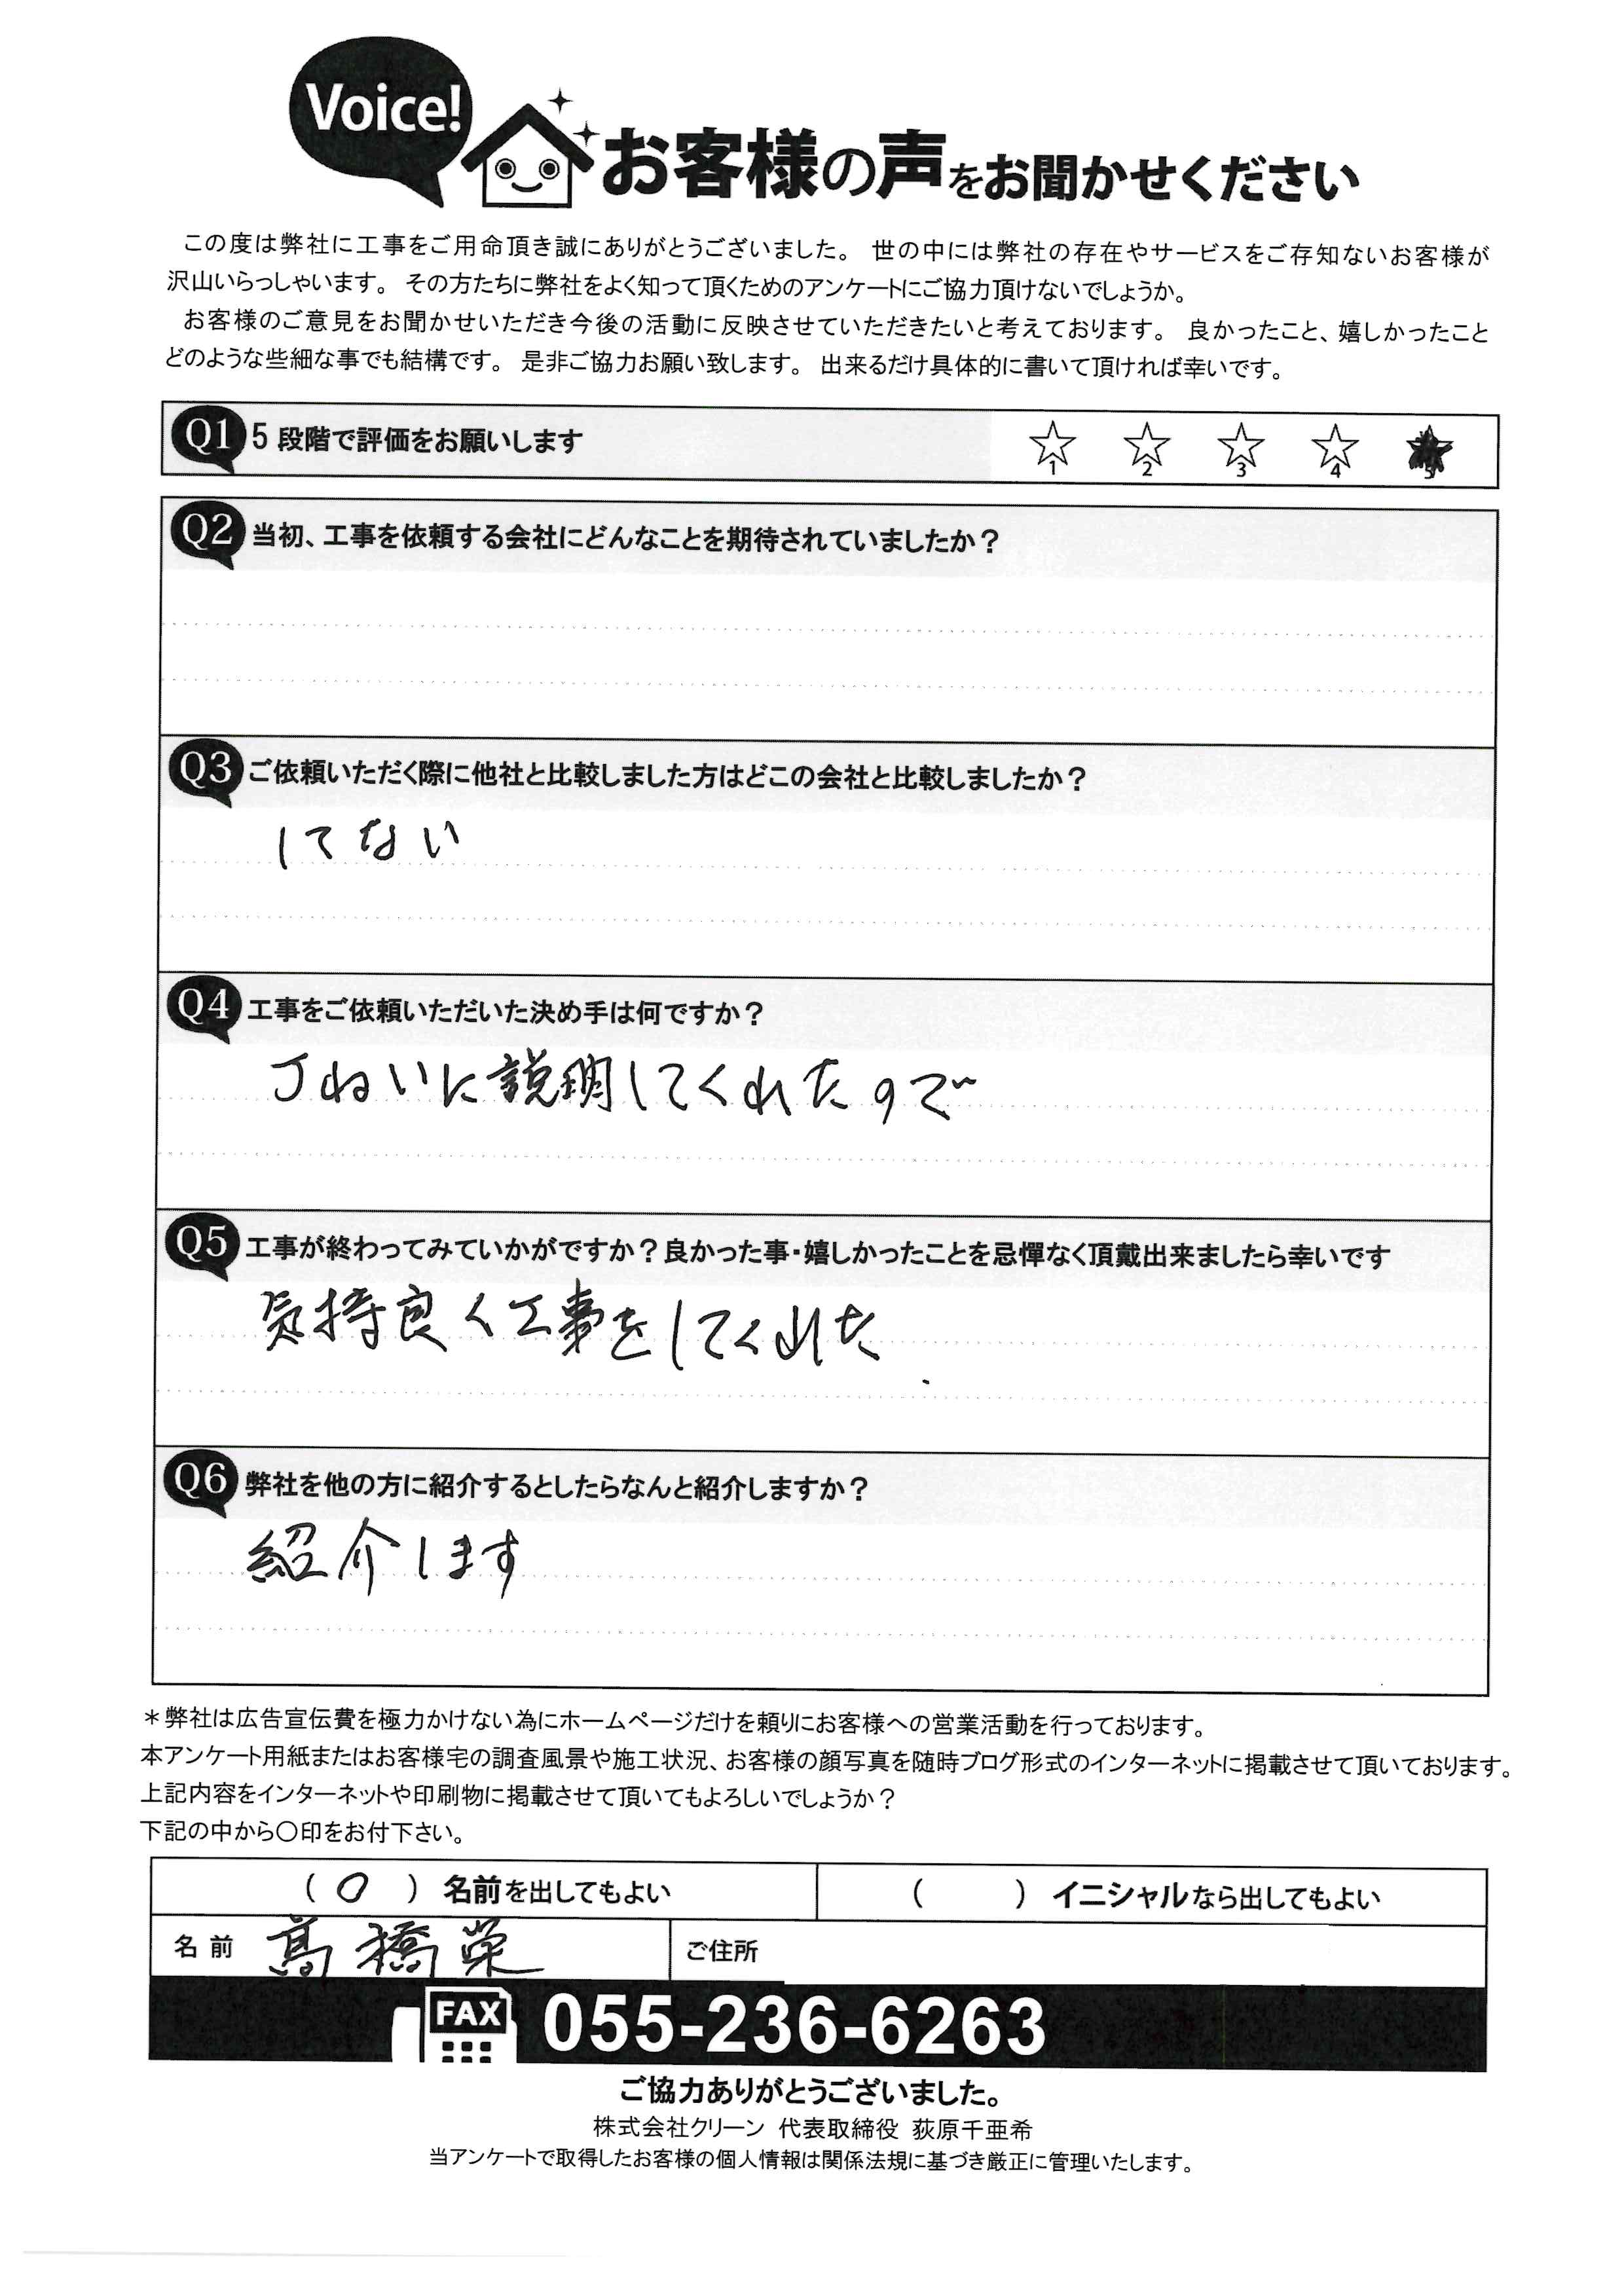 Voice!
お客様の声をお聞かせください
この度は弊社に工事をご用命頂き誠にありがとうございました。 世の中には弊社の存在やサービスをご存知ないお客様が
沢山いらっしゃいます。 その方たちに弊社をよく知って頂くためのアンケートにご協力頂けないでしょうか。
お客様のご意見をお聞かせいただき今後の活動に反映させていただきたいと考えております。 良かったこと、嬉しかったこと
どのような些細な事でも結構です。 是非ご協力お願い致します。 出来るだけ具体的に書いて頂ければ幸いです。
Q1 5 段階で評価をお願いします ☆1 ☆2 ☆3 ☆4 ★5
Q2 当初、工事を依頼する会社にどんなことを期待されていましたか？
Q3 ご依頼いただく際に他社と比較しました方はどこの会社と比較しましたか？
してない
Q4 工事をご依頼いただいた決め手は何ですか？
丁ねいに説明してくれたので
Q5 工事が終わってみていかがですか？良かった事・嬉しかったことを忌憚なく頂戴出来ましたら幸いです
気持良く工事をしてくれた
Q6 弊社を他の方に紹介するとしたらなんと紹介しますか？
紹介します
＊弊社は広告宣伝費を極力かけない為にホームページだけを頼りにお客様への営業活動を行っております。
本アンケート用紙またはお客様宅の調査風景や施工状況、お客様の顔写真を随時ブログ形式のインターネットに掲載させて頂いております。
上記内容をインターネットや印刷物に掲載させて頂いてもよろしいでしょうか？
下記の中から〇印をお付下さい。
（ 〇 ） 名前を出してもよい （ ） イニシャルなら出してもよい
名前 髙橋栄 ご住所
FAX 055-236-6263
ご協力ありがとうございました。
株式会社クリーン 代表取締役 荻原千亜希
当アンケートで取得したお客様の個人情報は関係法規に基づき厳正に管理いたします。